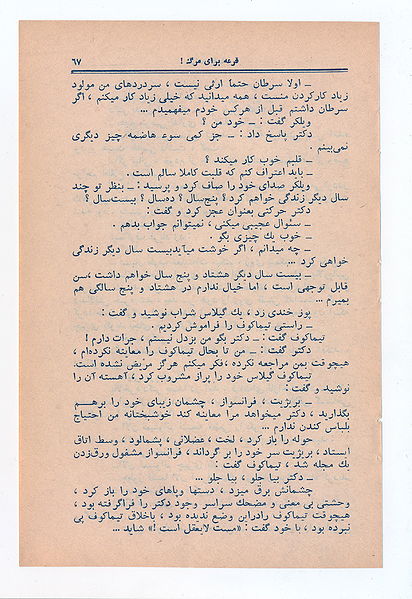 قرعه برای مرگ ! ۶۷
ــ اولا سرطان حتماً ارثی نیست ، سردردهای من مولود
زیاد کارکردن منست ، همه میدانید که خیلی زیاد کار میکنم ، اگر
سرطان داشتم قبل از هرکس خودم میفهمیدم ...
ویلکر گفت : ــ خود من ؟
دکتر پاسخ داد : ــ جز کمی سوء هاضمه چیز دیگری
نمی‌بینم .
ــ قلبم خوب کار میکند ؟
ــ باید اعتراف کنم که قلبت کاملا سالم است .
ویلکر صدای خود را صاف کرد و پرسید : ــ بنظر تو چند
سال دیگر زندگی خواهم کرد ؟ پنج‌سال ؟ ده‌سال ؟ بیست‌سال ؟
دکتر حرکتی بعنوان عجز کرد و گفت :
ــ سئوال عجیبی میکنی ، نمیتوانم جواب بدهم .
ــ خوب یك چیزی بگو .
ــ چه میدانم ، اگر خوشت میآید بیست سال دیگر زندگی
خواهی کرد ...
ــ بیست سال دیگر هشتاد و پنج سال خواهم داشت ، سن
قابل توجهی است ، اما خیال ندارم در هشتاد و پنج سالگی هم
بمیرم ...
پوز خندی زد ، یك گیلاس شراب نوشید و گفت :
ــ راستی تیماکوف را فراموش کردیم .
تیماکوف گفت : ــ دکتر بگو من بزدل نیستم ، جرات دارم !
دکتر گفت : ــ من تا بحال تیماکوف را معاینه نکرده‌ام ،
هیچوقت بمن مراجعه نکرده ، فکر میکنم هرگز مریض نشده است .
تیماکوف گیلاس خود را پراز مشروب کرد ، آهسته آن را
نوشید و گفت :
ــ بریژیت ، فرانسواز ، چشمان زیبای خود را برهم
بگذارید ، دکتر میخواهد مرا معاینه کند خوشبختانه من احتیاج
بلباس کندن ندارم ...
حوله را باز کرد ، لخت ، عضلانی ، پشمالود ، وسط اتاق
ایستاد ، بریژیت سر خود را بر گرداند ، فرانسواز مشغول ورق‌زدن
یك مجله شد ، تیماکوف گفت :
ــ دکتر بیا جلو ، بیا جلو ...
چشمانش برق میزد ، دستها وپاهای خود را باز کرد ،
وحشتی بی معنی و مضحك سراسر وجود دکتر را فراگرفته بود ،
هیچوقت تیماکوف رادراین وضع ندیده بود ، باخلاق تیماکوف پی
نبرده بود ، با خود گفت : «مست لایعقل است !» شاید ...